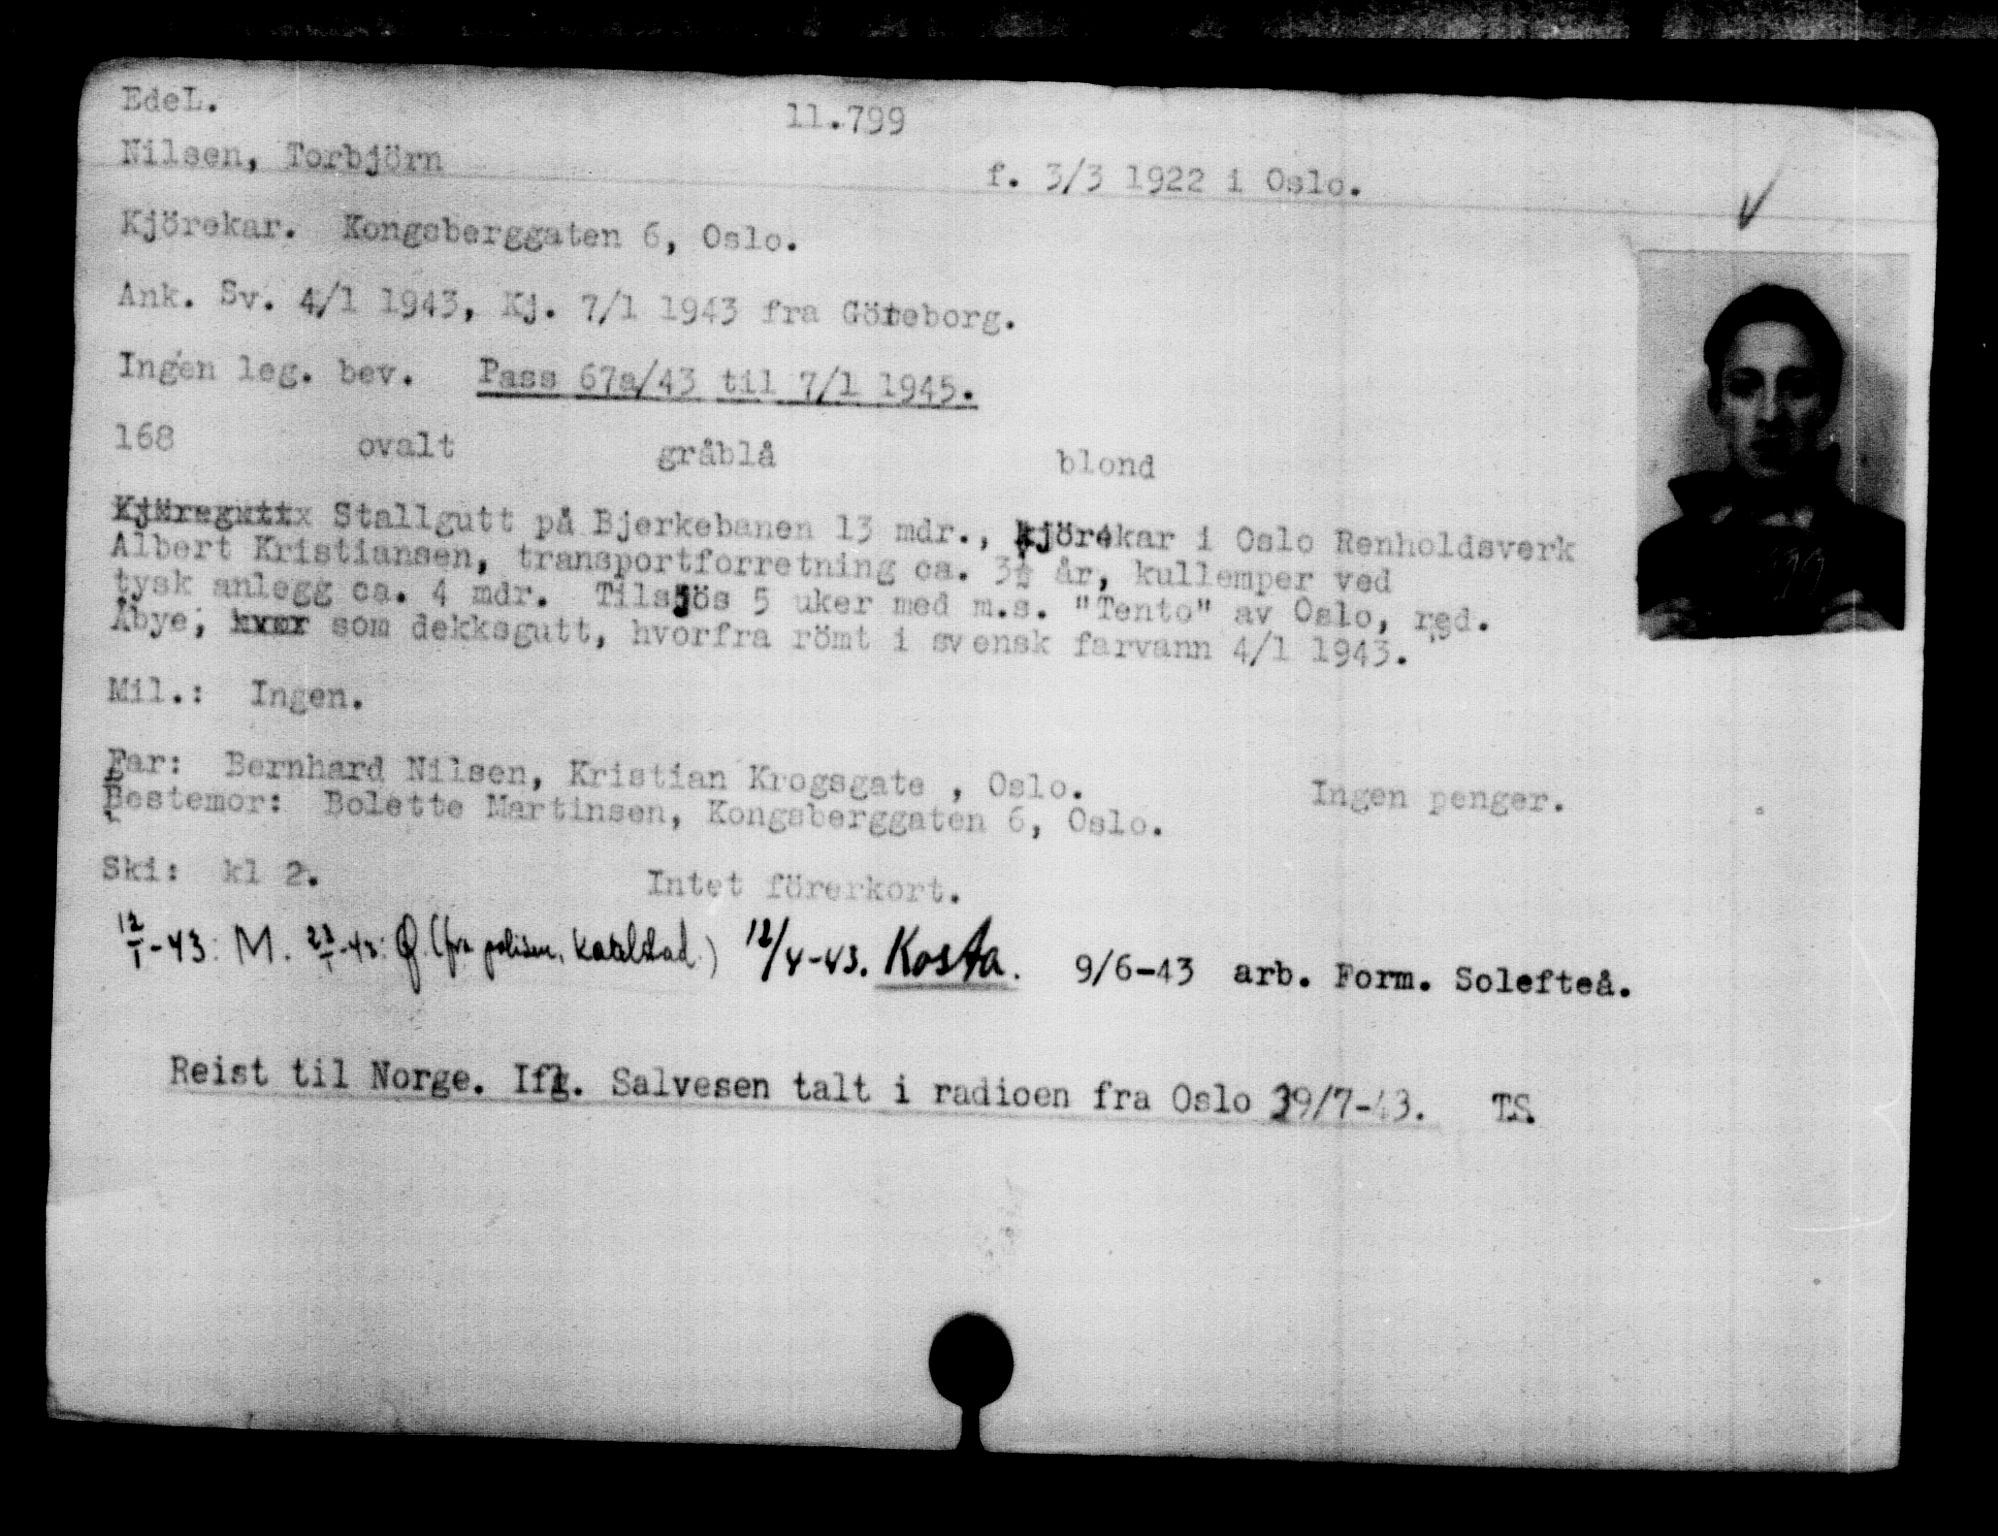 EdeL.
11.799
Nilsen, Torbjörn
f. 3/3 1922 i Oslo.
Kjörekar. Kongsberggaten 6, Oslo.
Ank. Sv. 4/1 1943, Kj. 7/1 1943 fra Göteborg.
Ingen leg. bev. Pass 67a/43 til 7/1 1945.
168 ovalt gråblå blond
Kjöregutt Stallgutt på Bjerkebanen 13 mdr., kjörekar i Oslo Renholdsverk
Albert Kristiansen, transportforretning ca. 3½ år, kullemper ved
tysk anlegg ca. 4 mdr. Tilsjös 5 uker med m.s. "Tento" av Oslo, red.
Åbye, hvor som dekksgutt, hvorfra römt i svensk farvann 4/1 1943.
Mil.: Ingen.
Far: Bernhard Nilsen, Kristian Krogsgate , Oslo.
Ingen penger.
Bestemor: Bolette Martinsen, Kongsberggaten 6, Oslo.
Ski: kl 2. Intet förerkort.
12/1-43: M. 23/1-43: Q. (fra 12/4-43. Kosta. 9/6-43 arb. Form. Solefteå.
Reist til Norge. Iflg. Salvesen talt i radioen fra Oslo 29/7-43. T.S.